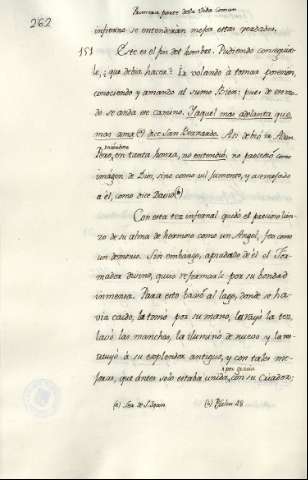 Primera parte de la Vida Comun
262
infierno se entenderian mejor estas verdades.
151 Este es el fin del hombre. Pudiendo conseguir-
le, ¿que debia hacer? Ir volando à tomar posesion,
conociendo y amando al sumo Bien; pues de
do se anda este camino. Y aquel mas adelanta que
mas ama (a) dice San Bernardo. Asi debió ir Adan
Pero, en tanta honra, no entendió; no pareció como
imagen de Dios, sino como vil jumento, y asemejado
a él, como dice David (b)
Con esta tea infernal quedó el precioso lien-
zo de su alma de hermoso como un Angel, feo como
un demonio. Sin embargo, apiadado de él el For-
mador divino, quiso reformarle por su bondad
inmensa. Para esto baxó al lago, donde se ha-
via caido, la tomó por su mano, la
lavó las manchas, la iluminó de nuevo y la res-
tituyó à su esplendor antiguo, y con tales me-
joras, que antes solo estaba unida, por gracia con su Criador;
(a) (b) Psalm. 48